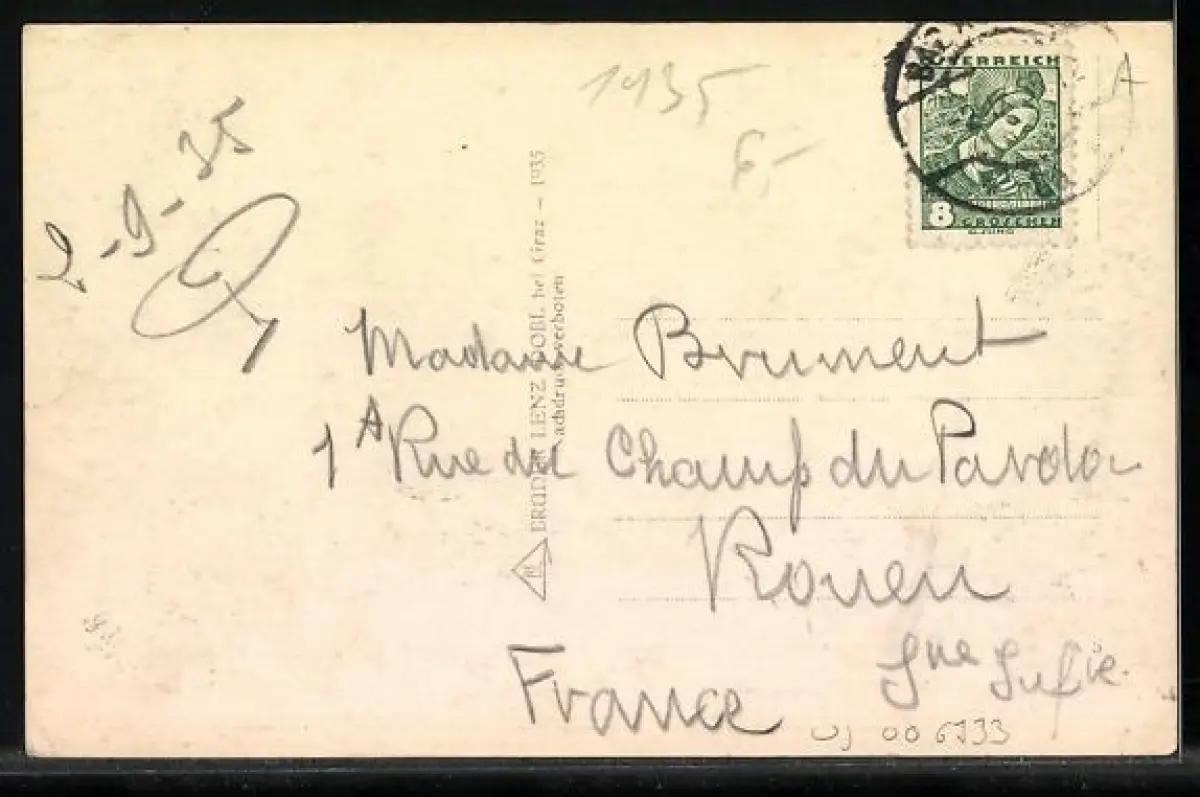 1935
A
6,-
2-9-35
ÖSTERREICH
8 GROSCHEN
G.JUNG
BRÜDER LENZ DOBL bei Graz – 1935
Nachdruck verboten
Madame Brument
1A Rue du Champ du Pardon
Rouen
Sne Infre.
France
006733